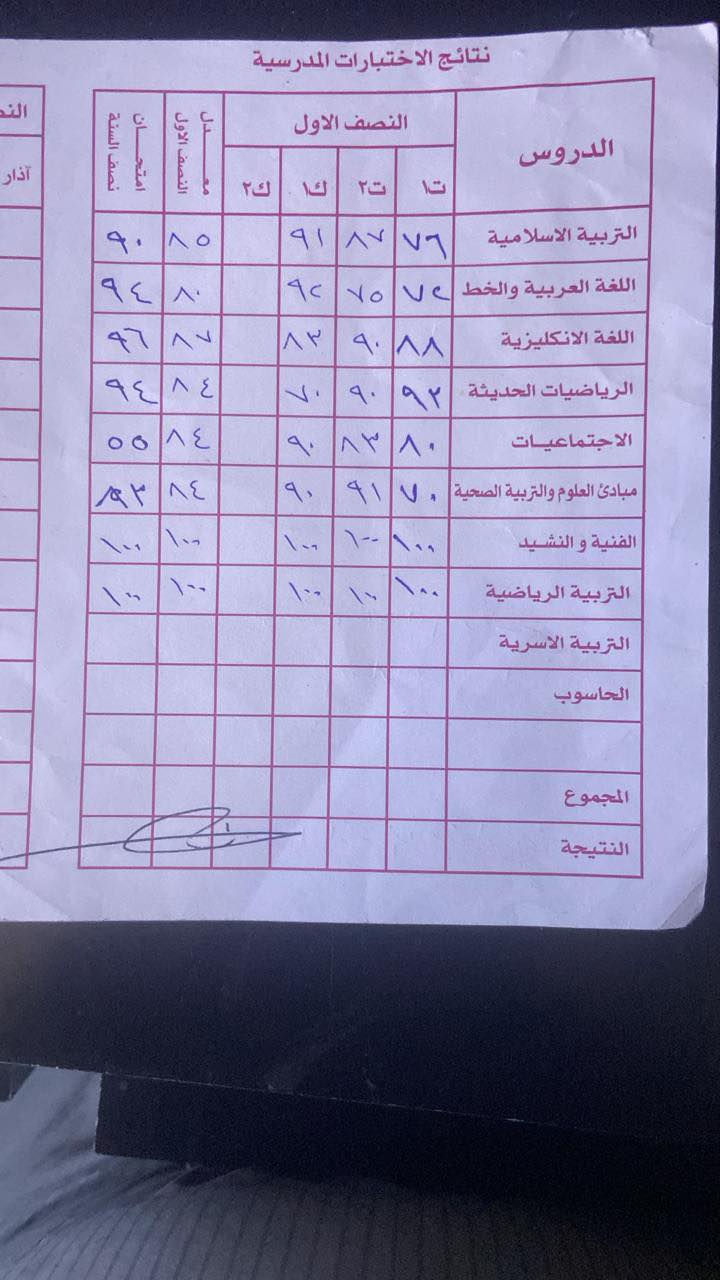 نتائج الاختبارات المدرسية
الدروس النصف الاول معــدل النصف الاول امتحــان نصف السنة
ت١ ت٢ ك١ ك٢
التربية الاسلامية ٧٦ ٨٧ ٩١ ٨٥ ٩٠
اللغة العربية والخط ٧٢ ٧٥ ٩٢ ٨٠ ٩٤
اللغة الانكليزية ٨٨ ٩٠ ٨٣ ٨٧ ٩٦
الرياضيات الحديثة ٩٢ ٩٠ ٧٠ ٨٤ ٩٤
الاجتماعيــات ٨٠ ٨٣ ٩٠ ٨٤ ٥٥
مبادئ العلوم والتربية الصحية ٧٠ ٩١ ٩٠ ٨٤ ٩٣
الفنية و النشيد ١٠٠ ١٠٠ ١٠٠ ١٠٠ ١٠٠
التربية الرياضية ١٠٠ ١٠٠ ١٠٠ ١٠٠ ١٠٠
التربية الاسرية
الحاسوب
المجموع
النتيجة
آذار